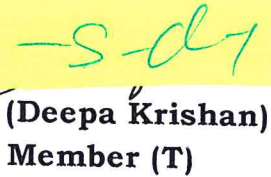 -s-d/-
(Deepa Krishan)
Member (T)